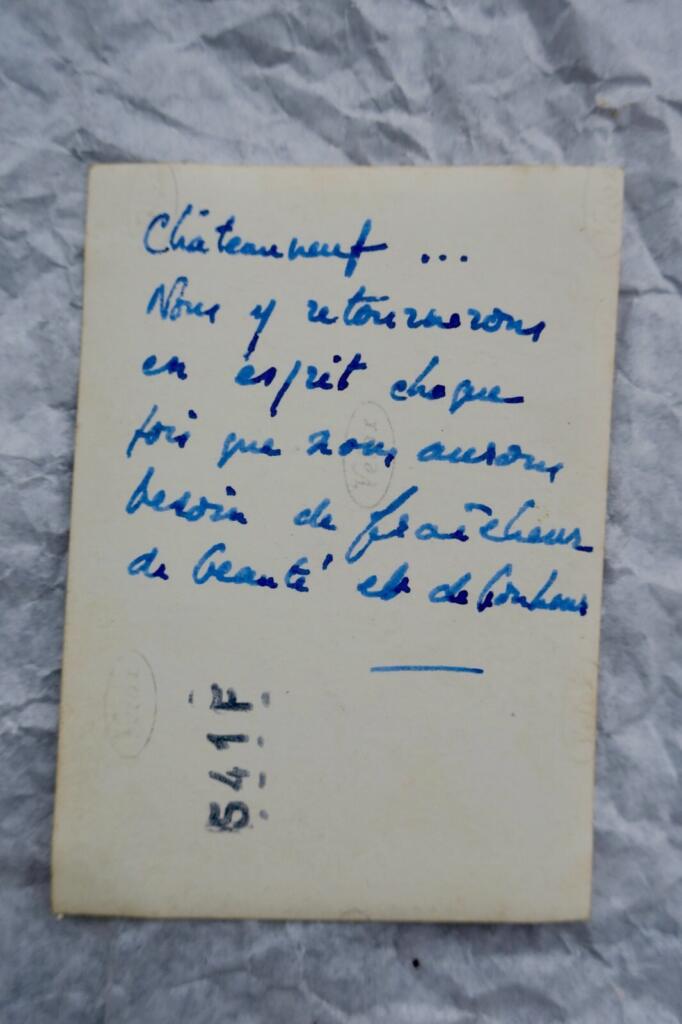 Châteauneuf ...
Nous y retournerons
en esprit chaque
fois que nous aurons
besoin de fraîcheur
de beauté et de bonheur
Velox
Velox
541F